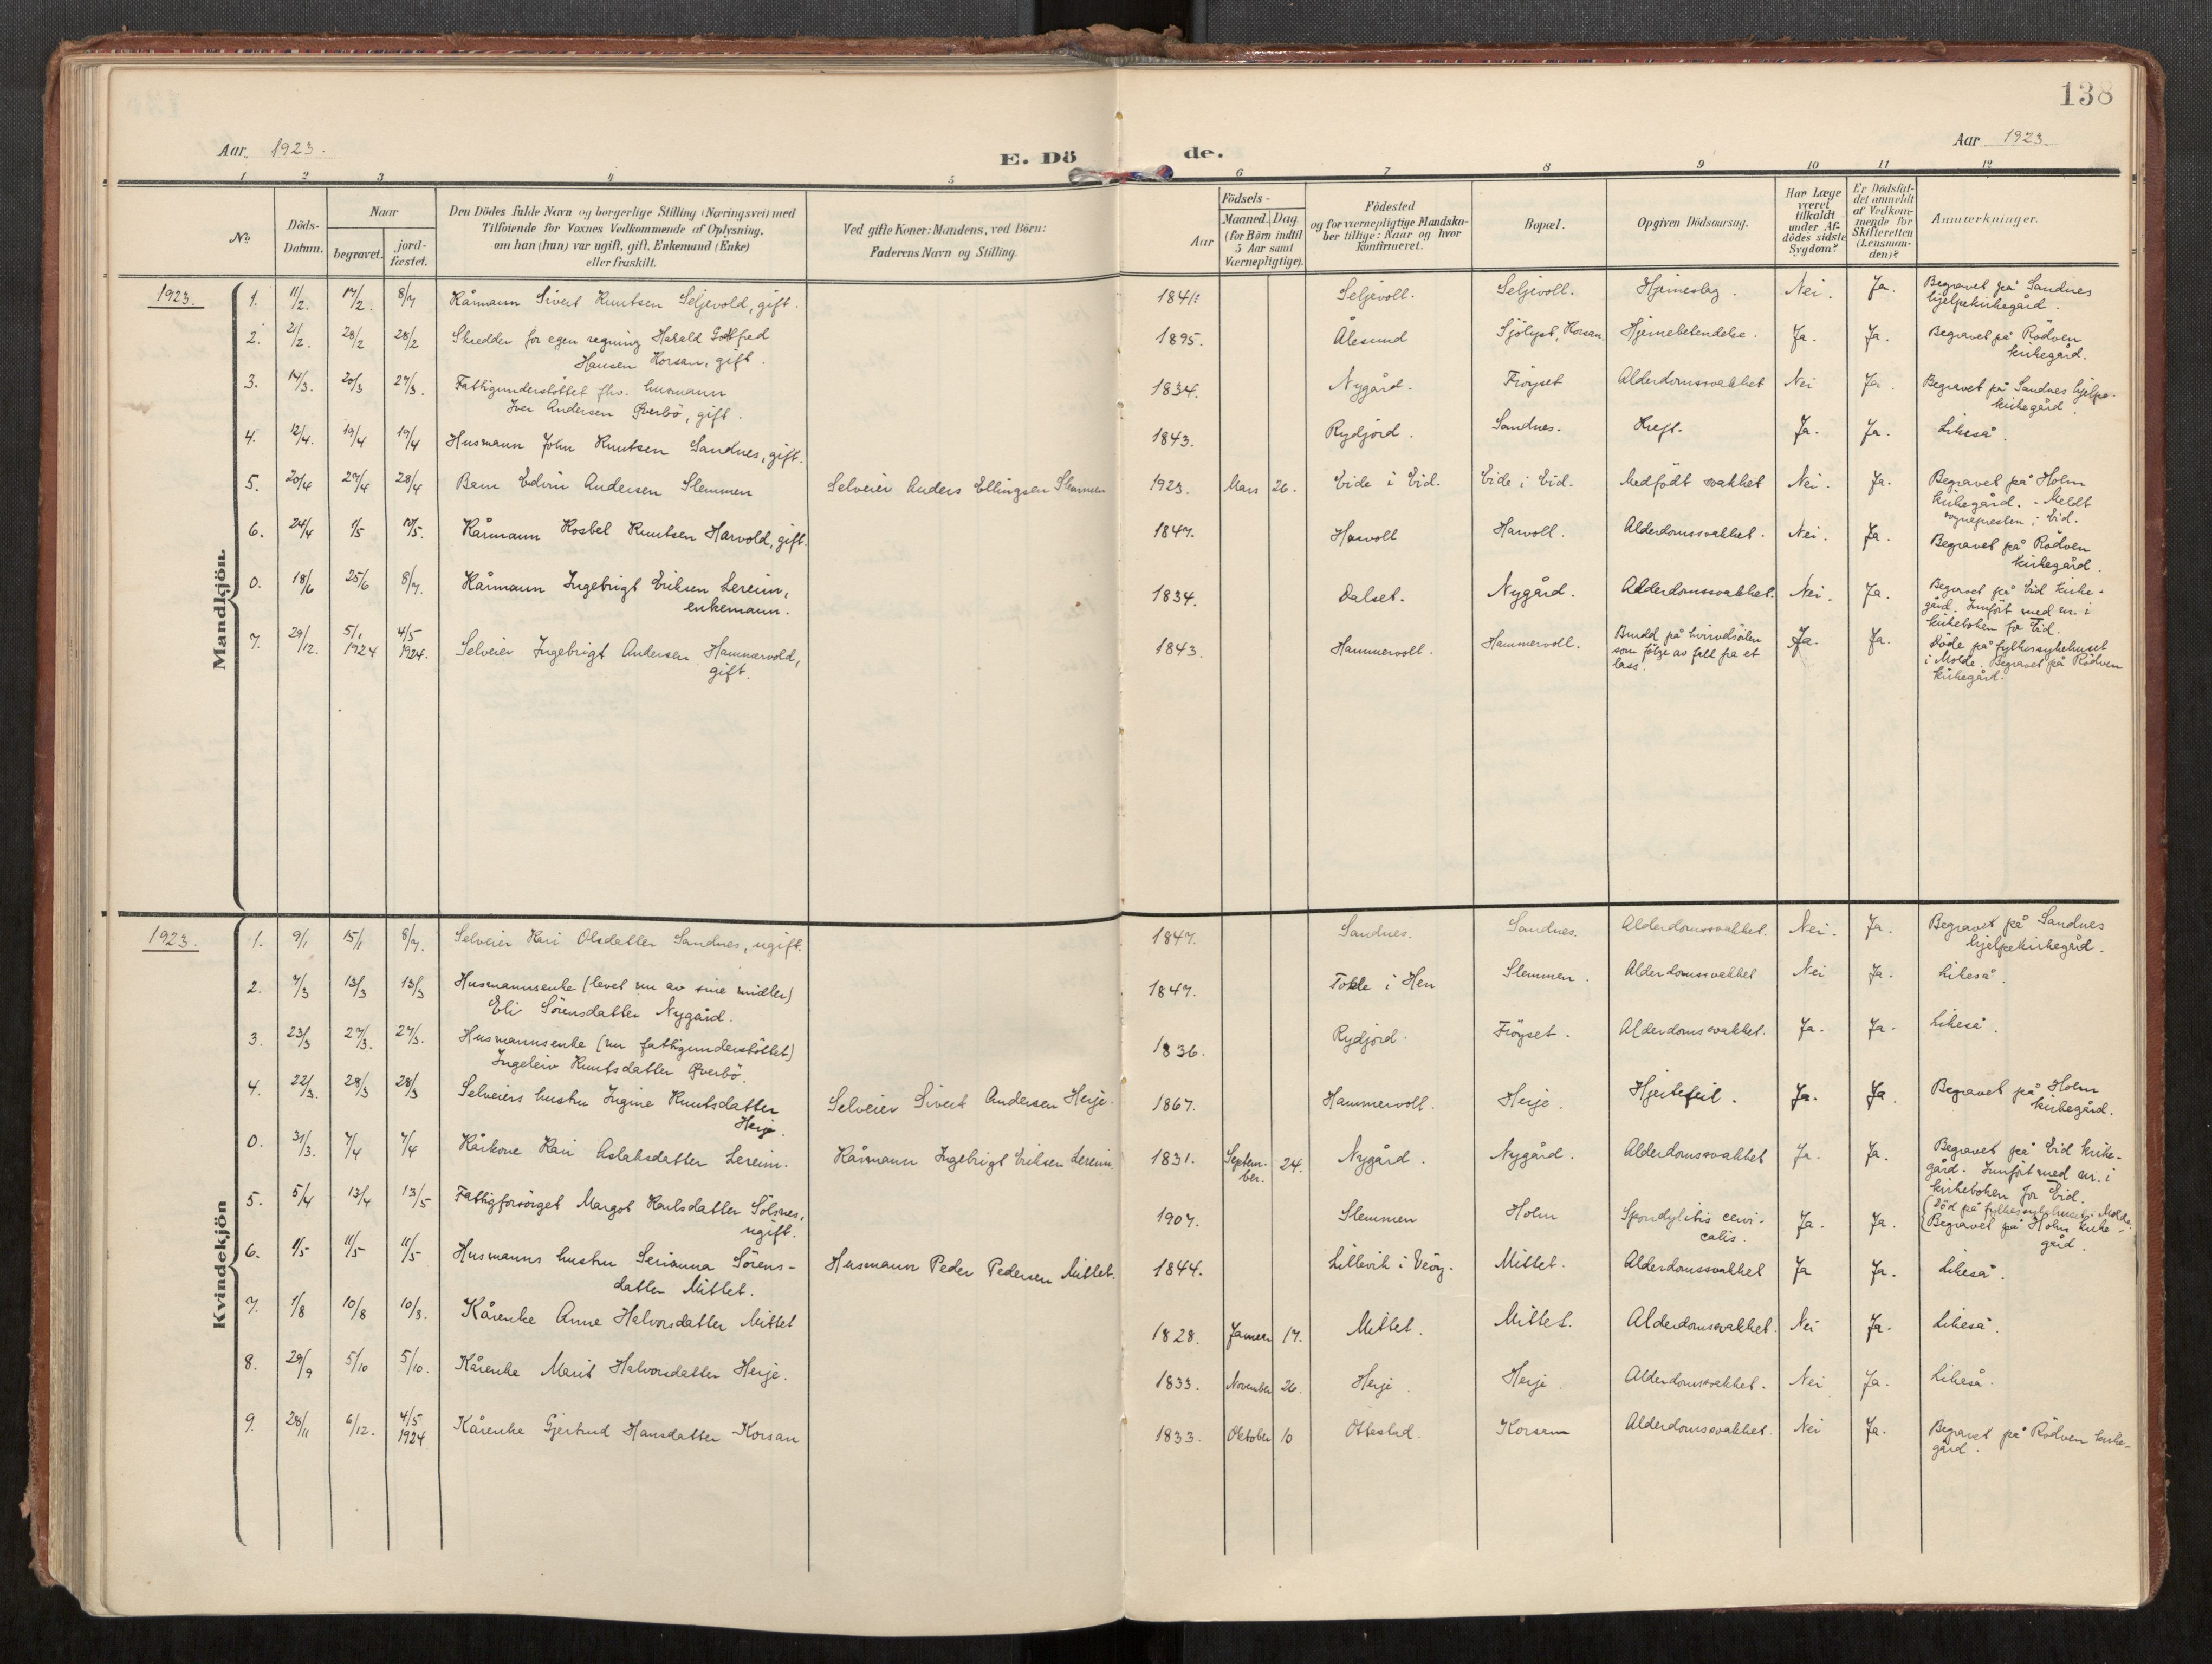 138
Aar 1923.
E. Döde.
Aar 1923.
1 2 3 4 5 6 7 8 9 10 11 12
No.
Döds-
Datum.
Naar
begravet.
jord-
fæstet.
Den Dödes fulde Navn og borgerlige Stilling (Næringsvei) med
Tilföiende for Voxnes Vedkommende af Oplysning,
om han (hun) var ugift, gift, Enkemand (Enke)
eller fraskilt.
Ved gifte Koner: Mandens, ved Börn:
Faderens Navn og Stilling.
Födsels-
Aar
Maaned. Dag.
(for Börn indtil
5 Aar samt
Værnepligtige).
Födested
og for værnepligtige Mandska-
ber tillige: Naar og hvor
konfirmeret.
Bopæl.
Opgiven Dödsaarsag.
Har Læge
været
tilkaldt
under Af-
dödes sidste
Sygdom?
Er Dödsfal-
det anmeldt
af Vedkom-
mende for
Skifteretten
(Lensman-
den)?
Anmærkninger.
Mandkjön
1923. 1. 11/2. 17/2. 8/7 Kårmann Sivert Knutsen Seljevold, gift. 1841. Seljevoll. Seljevoll. Hjerneslag. Nei. Ja. Begravet på Sandnes
hjelpekirkegård.
2. 21/2. 28/2 28/2 Skredder for egen regning Harald Gotfred
Hansen Korsan, gift. 1895. Ålesund Sjölyst, Korsan Hjernebetendelse. Ja. Ja. Begravet på Rödven
kirkegård.
3. 14/3. 20/3 27/3. Fattigunderstöttet fhv. husmann
Iver Andersen Överbö, gift. 1834. Nygård. Fröyset Alderdomssvakhet Nei Ja. Begravet på Sandnes hjelpe-
kirkegård.
4. 12/4. 19/4 19/4 Husmann John Knutsen Sandnes, gift. 1843. Rydjord. Sandnes. Kreft. Ja. Ja. Likeså.
5. 20/4 27/4 28/4 Barn Edvin Andersen Slemmen Selveier Anders Ellingsen Slemmen 1923. Mars 26. Eide i Eid. Eide i Eid. Medfödt svakhet Nei. Ja. Begravet på Holm
kirkegård. - Meldt
sognepresten i Eid.
6. 24/4 1/5 10/5. Kårmann Rosbel Knutsen Harvold, gift. 1847. Harvoll Harvoll. Alderdomssvakhet. Nei. Ja. Begravet på Rödven
kirkegård.
0. 18/6 25/6 8/7. Kårmann Ingebrigt Eriksen Lereim,
enkemann. 1834. Dalset. Nygård. Alderdomssvakhet. Nei. Ja. Begravet på Eid kirke-
gård. Innfört med nr. i
kirkeboken for Eid.
7. 29/12. 5/1 1924 4/5 1924. Selveier Ingebrigt Andersen Hammervold,
gift. 1843. Hammervoll. Hammervoll. Brudd på hvirvelsöilen
som fölge av fall fra et
lass. Ja. Ja. Döde på fylkessykehuset
i Molde. Begravet på Rödven
kirkegård.
Kvindekjön
1923. 1. 9/1 15/1 8/7. Selveier Kari Olsdatter Sandnes, ugift. 1847. Sandnes. Sandnes. Alderdomssvakhet. Nei. Ja. Begravet på Sandnes
hjelpekirkegård.
2. 7/3 13/3 13/3 Husmannsenke (levet nu av sine midler)
Eli Sörensdatter Nygård. 1847. Tokle i Hen Slemmen. Alderdomssvakhet Nei Ja. Likeså.
3. 23/3 27/3. 27/3. Husmannsenke (nu fattigunderstöttet)
Ingeleiv Knutsdatter Överbö. 1836. Rydjord. Fröyset. Alderdomssvakhet. Ja. Ja. Likeså.
4. 22/3. 28/3 28/3 Selveiers hustru Ingine Knutsdatter
Herje. Selveier Sivert Andersen Herje. 1867. Hammervoll. Herje. Hjertefeil. Ja. Ja. Begravet på Holm
kirkegård.
0. 31/3. 7/4 7/4 Kårkone Kari Aslaksdatter Lereim. Kårmann Ingebrigt Eriksen Lereim. 1831. Septem-
ber. 24. Nygård. Nygård. Alderdomssvakhet Ja. Ja. Begravet på Eid kirke-
gård. Innfört med nr. i
kirkeboken for Eid.
5. 5/4 13/4 13/5 Fattigforsörget Margot Karlsdatter Sölsnes,
ugift. 1907. Slemmen Holm Spondylitis cervi-
calis. Ja. Ja. Död på fylkessykehuset i Molde.
Begravet på Holm kirke-
gård.
6. 1/5 11/5 11/5 Husmanns hustru Serianna Sörens-
datter Mittet. Husmann Peder Pedersen Mittet. 1844. Lillevik i Veöy. Mittet. Alderdomssvakhet Ja Ja. Likeså.
7. 1/8 10/8 10/8. Kårenke Anne Halvorsdatter Mittet 1828. Januar 17. Mittet. Mittet. Alderdomssvakhet. Nei Ja. Likeså.
8. 29/9 5/10 5/10. Kårenke Marit Halvorsdatter Herje. 1833. November 26. Herje. Herje. Alderdomssvakhet. Nei Ja. Likeså.
9. 28/11 6/12. 4/5 1924 Kårenke Gjertrud Hansdatter Korsan 1833. Oktober 10 Ottestad. Korsan Alderdomssvakhet. Nei Ja. Begravet på Rödven kirke-
gård.